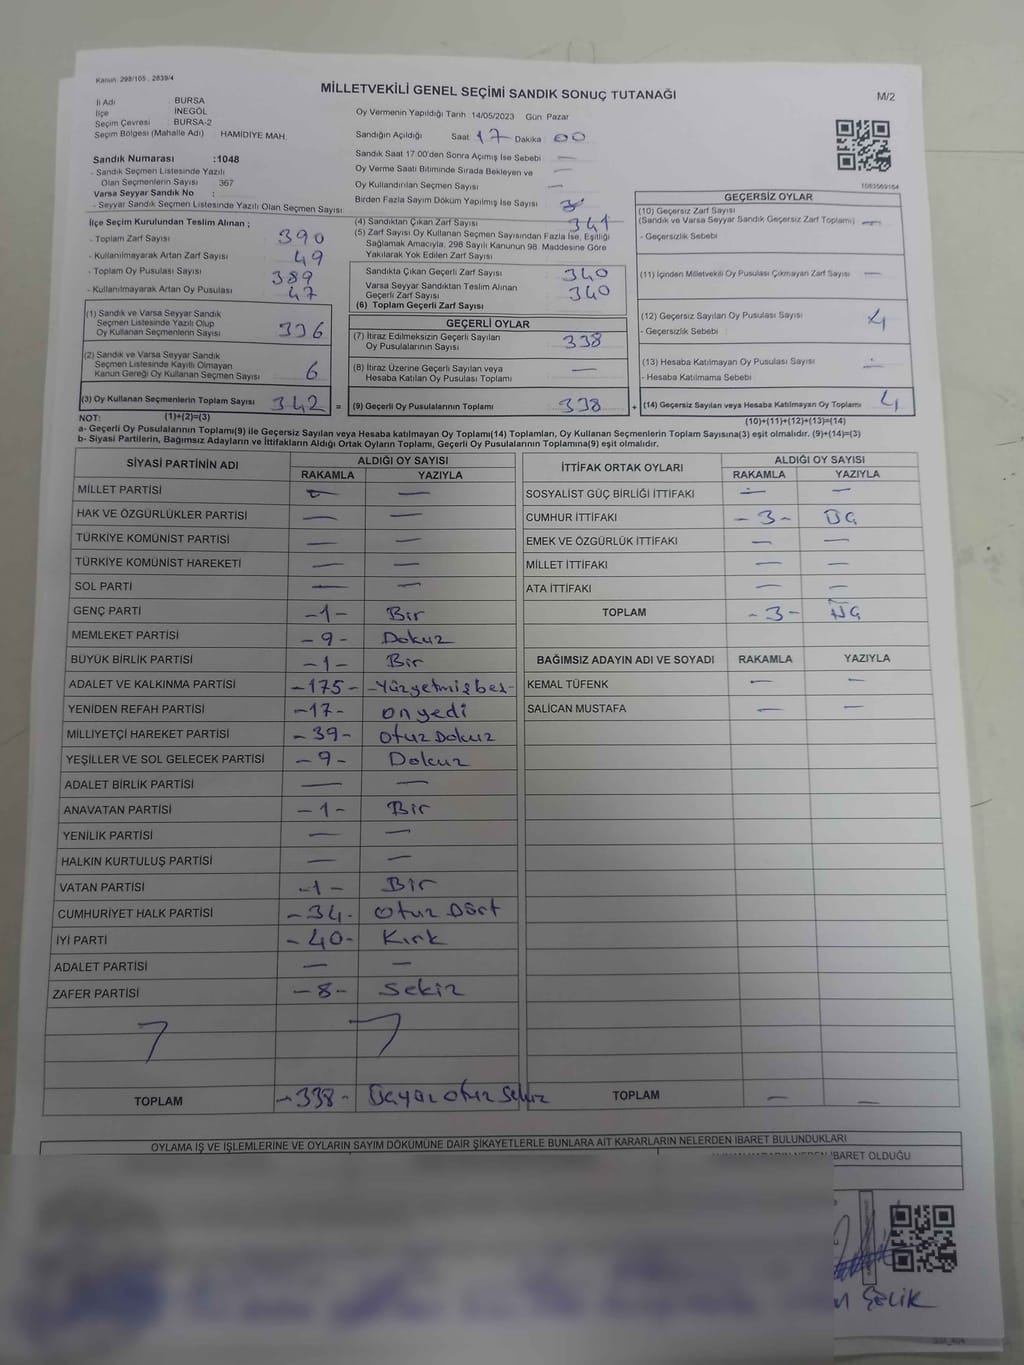 Kanun: 298/105 , 2839/4
MİLLETVEKİLİ GENEL SEÇİMİ SANDIK SONUÇ TUTANAĞI
M/2
İl Adı BURSA
İlçe İNEGÖL
Seçim Çevresi BURSA-2
Seçim Bölgesi (Mahalle Adı) HAMİDİYE MAH.
Sandık Numarası :1048
- Sandık Seçmen Listesinde Yazılı
Olan Seçmenlerin Sayısı 367
Varsa Seyyar Sandık No :
- Seyyar Sandık Seçmen Listesinde Yazılı Olan Seçmen Sayısı
Oy Vermenin Yapıldığı Tarih 14/05/2023 Gün Pazar
Sandığın Açıldığı Saat 17 Dakika 00
Sandık Saat 17:00'den Sonra Açımış İse Sebebi —
Oy Verme Saati Bitiminde Sırada Bekleyen ve —
Oy Kullandırılan Seçmen Sayısı —
Birden Fazla Sayım Döküm Yapılmış İse Sayısı
1083569164
İlçe Seçim Kurulundan Teslim Alınan ;
- Toplam Zarf Sayısı 390
- Kullanılmayarak Artan Zarf Sayısı 49
- Toplam Oy Pusulası Sayısı 389
- Kullanılmayarak Artan Oy Pusulası 47
(1) Sandık ve Varsa Seyyar Sandık
Seçmen Listesinde Yazılı Olup
Oy Kullanan Seçmenlerin Sayısı 336
(2) Sandık ve Varsa Seyyar Sandık
Seçmen Listesinde Kayıtlı Olmayan
Kanun Gereği Oy Kullanan Seçmen Sayısı 6
(3) Oy Kullanan Seçmenlerin Toplam Sayısı 342 =
(4) Sandıktan Çıkan Zarf Sayısı 341
(5) Zarf Sayısı Oy Kullanan Seçmen Sayısından Fazla İse, Eşitliği
Sağlamak Amacıyla, 298 Sayılı Kanunun 98. Maddesine Göre
Yakılarak Yok Edilen Zarf Sayısı
Sandıkta Çıkan Geçerli Zarf Sayısı 340
Varsa Seyyar Sandıktan Teslim Alınan
Geçerli Zarf Sayısı 340
(6) Toplam Geçerli Zarf Sayısı
GEÇERLİ OYLAR
(7) İtiraz Edilmeksizin Geçerli Sayılan
Oy Pusulalarının Sayısı 338
(8) İtiraz Üzerine Geçerli Sayılan veya
Hesaba Katılan Oy Pusulası Toplamı —
(9) Geçerli Oy Pusulalarının Toplamı 338 +
GEÇERSİZ OYLAR
(10) Geçersiz Zarf Sayısı
(Sandık ve Varsa Seyyar Sandık Geçersiz Zarf Toplamı) —
- Geçersizlik Sebebi
(11) İçinden Milletvekili Oy Pusulası Çıkmayan Zarf Sayısı —
(12) Geçersiz Sayılan Oy Pusulası Sayısı 4
- Geçersizlik Sebebi
(13) Hesaba Katılmayan Oy Pusulası Sayısı —
- Hesaba Katılmama Sebebi
(14) Geçersiz Sayılan veya Hesaba Katılmayan Oy Toplamı 4
NOT: (1)+(2)=(3)
(10)+(11)+(12)+(13)=(14)
a- Geçerli Oy Pusulalarının Toplamı(9) ile Geçersiz Sayılan veya Hesaba katılmayan Oy Toplamı(14) Toplamları, Oy Kullanan Seçmenlerin Toplam Sayısına(3) eşit olmalıdır. (9)+(14)=(3)
b- Siyasi Partilerin, Bağımsız Adayların ve İttifakların Aldığı Ortak Oyların Toplamı, Geçerli Oy Pusulalarının Toplamına(9) eşit olmalıdır.
SİYASİ PARTİNİN ADI ALDIĞI OY SAYISI
RAKAMLA YAZIYLA
MİLLET PARTİSİ — —
HAK VE ÖZGÜRLÜKLER PARTİSİ — —
TÜRKİYE KOMÜNİST PARTİSİ — —
TÜRKİYE KOMÜNİST HAREKETİ — —
SOL PARTİ — —
GENÇ PARTİ -1- Bir
MEMLEKET PARTİSİ -9- Dokuz
BÜYÜK BİRLİK PARTİSİ -1- Bir
ADALET VE KALKINMA PARTİSİ -175- -Yüzyetmişbeş-
YENİDEN REFAH PARTİSİ -17- onyedi
MİLLİYETÇİ HAREKET PARTİSİ -39- otuz Dokuz
YEŞİLLER VE SOL GELECEK PARTİSİ -9- Dokuz
ADALET BİRLİK PARTİSİ — —
ANAVATAN PARTİSİ -1- Bir
YENİLİK PARTİSİ — —
HALKIN KURTULUŞ PARTİSİ — —
VATAN PARTİSİ -1- Bir
CUMHURİYET HALK PARTİSİ -34- otuz Dört
İYİ PARTİ -40- Kırk
ADALET PARTİSİ — —
ZAFER PARTİSİ -8- Sekiz
TOPLAM -338- üçyüz otuz sekiz
İTTİFAK ORTAK OYLARI ALDIĞI OY SAYISI
RAKAMLA YAZIYLA
SOSYALİST GÜÇ BİRLİĞİ İTTİFAKI — —
CUMHUR İTTİFAKI -3- Üç
EMEK VE ÖZGÜRLÜK İTTİFAKI — —
MİLLET İTTİFAKI — —
ATA İTTİFAKI — —
TOPLAM -3- Üç
BAĞIMSIZ ADAYIN ADI VE SOYADI RAKAMLA YAZIYLA
KEMAL TÜFENK — —
SALİCAN MUSTAFA — —
TOPLAM — —
OYLAMA İŞ VE İŞLEMLERİNE VE OYLARIN SAYIM DÖKÜMÜNE DAİR ŞİKAYETLERLE BUNLARA AİT KARARLARIN NELERDEN İBARET BULUNDUKLARI
İBARET OLDUĞU